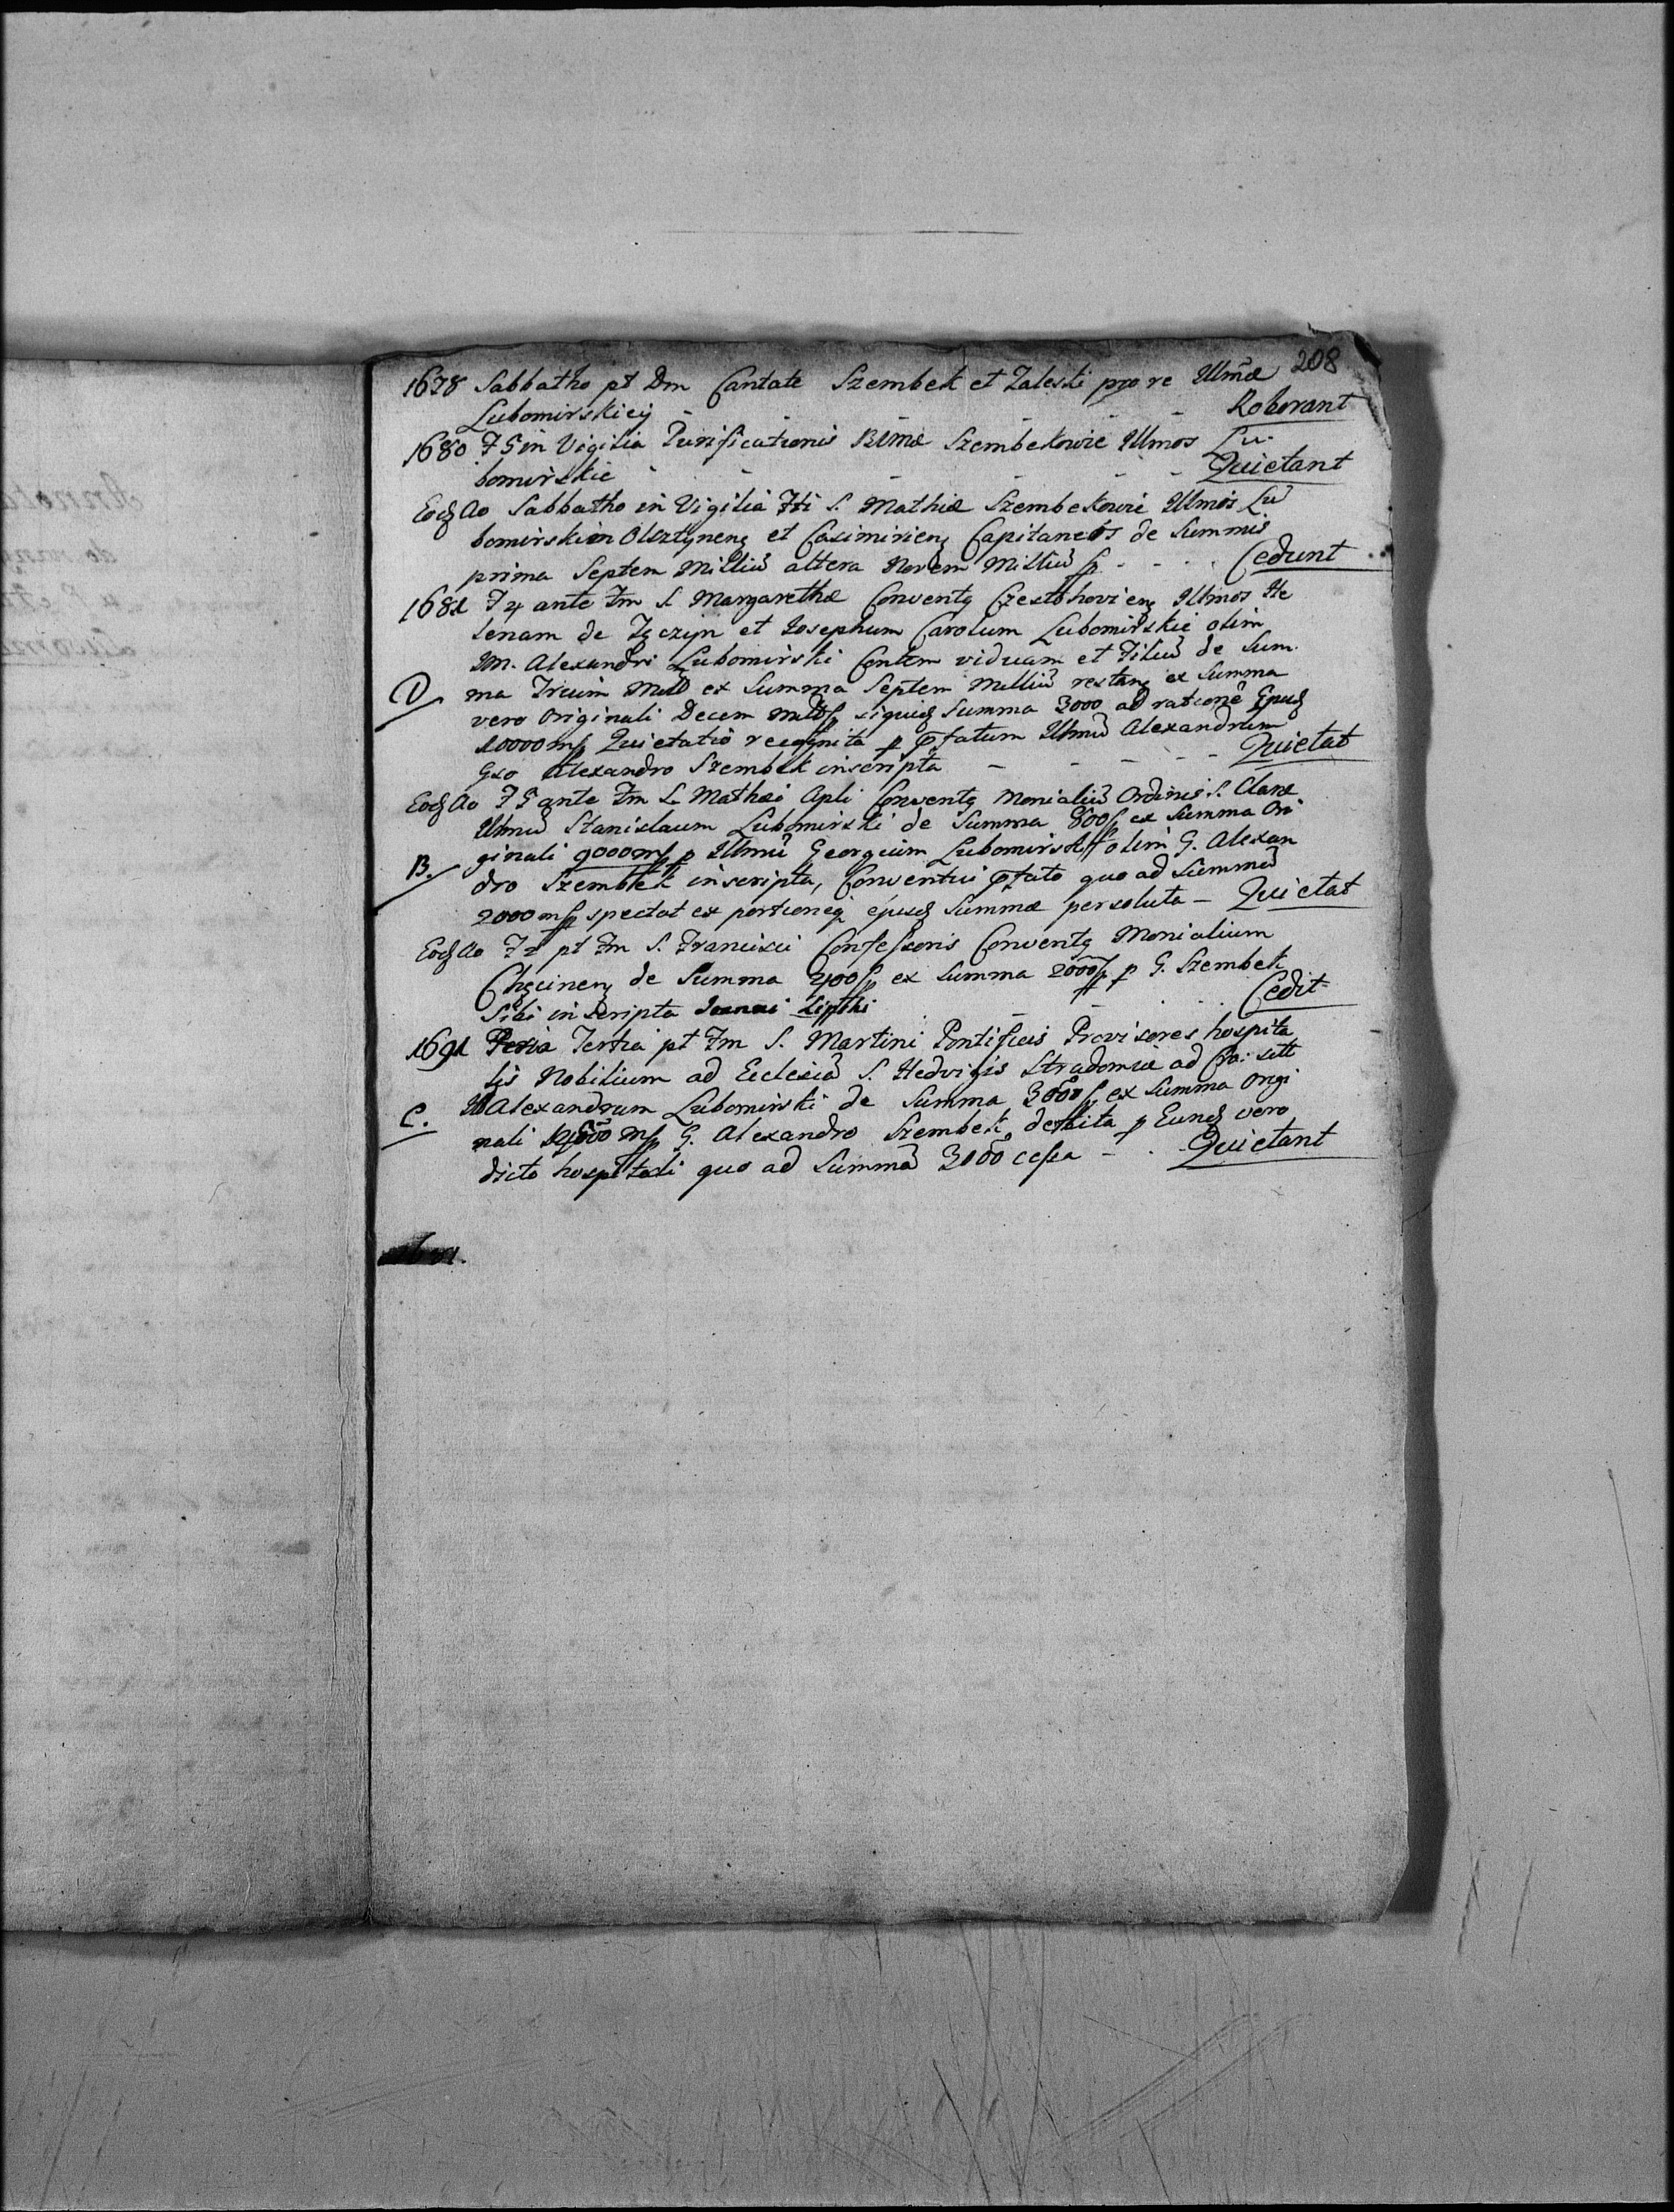 208
1678 Sabbatho pt Dm Cantate Szembek et Zaleski pro re Illmæ
Lubomirskiey - - - - - Roborant
1680 F 5 in Vigilia Purificationis BVMæ Szembekowie Illmos Lu-
bomirskie - - - - - Quietant
Eodq Ao Sabbatho in Vigilia Fti S. Mathiæ Szembekowie Illmos Lu
bomirskim Olsztynenq et Casimirienq Capitaneos de Summis
prima Septem Milliū altera Novem Milliū fp - - - Cedunt
1681 F 4 ante Fm S. Margarethæ Conventq Czestohovienq Illmos He
lenam de Tęczyn et Josephum Carolum Lubomirskie olim
IM. Alexandri Lubomirski Contem viduam et Filiū de Sum
D ma Trium Mill ex Summa Septem Milliū restanq ex Summa
vero Originali Decem Mill siquidq Summa 3000 ad rationē Ejusdq
10000 mp Quietatio recognita p pfatum Illmū Alexandrum
Gso Alexandro Szembek inscripta - - - - Quietat
Eodq Ao F 5 ante Fm S. Mathæi Apli Conventq Monialiū Ordinis S. Claræ
Illmū Stanislaum Lubomirski de Summa 800 fp ex Summa Ori
B. ginali 9000 mp p Illmū Georgium Lubomirski olim G. Alexan
dro Szembek inscripta, Conventui pfato quo ad Summā
2000 mp spectat ex portioneq ejusdq Summæ persoluta - Quietat
Eodq Ao F 2 pt Fm S. Francisci Confessoris Conventq Monialium
Chęcinenq de Summa 400 fp ex Summa 2000 fp p G. Szembek
Sibi inscripta Joanni Lipski - - - Cedit
1691 Feria Tertia pt Fm S. Martini Pontificis Provisores hospita
lis Nobilium ad Ecclesiā S. Hedvigis Stradomiæ ad Cra: sitt
C. Alexandrum Lubomirski de Summa 3000 fp ex Summa Origi
nali mp G. Alexandro Szembek debita p Eundq vero
dicto hospitali quo ad Summā 3000 cessa - - Quietant